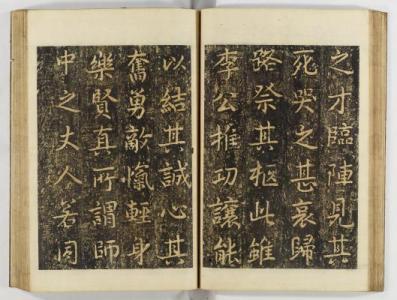 之才臨陣見其
死哭之甚哀歸
路祭其柩此雖
李公推功讓能
以結其誠心其
奮勇敵愾輕身
樂賢真所謂師
中之丈人若同